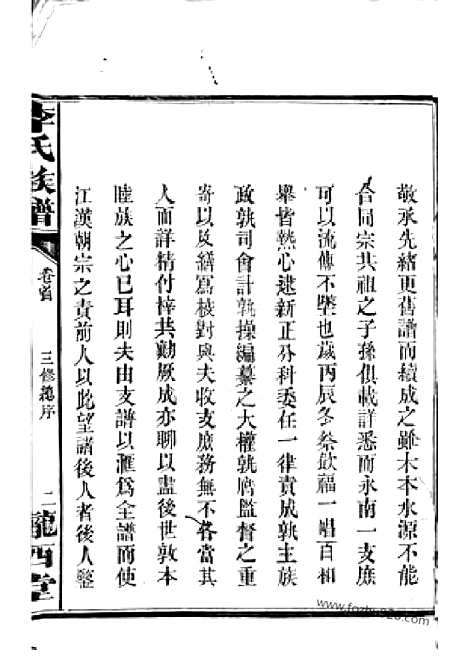 敬承先緒更舊譜而續成之雖木本水源不能
合同宗共祖之子孫俱載詳悉而永南一支庶
可以流傳不墜也歲丙辰冬祭飲福一唱百相
舉皆熱心逮新正分科委任一律責成孰主族
政孰司會計孰操編纂之大權孰膺監督之重
寄以及繕寫校對與夫收支庶務無不各當其
人而詳精付梓共勤厥成亦聊以盡後世敦本
睦族之心已耳則夫由支譜以滙為全譜而使
江漢朝宗之責前人以此望諸後人者後人鑒
李氏族譜
卷首
三修總序
二
隴西堂
www.fozhu920.com